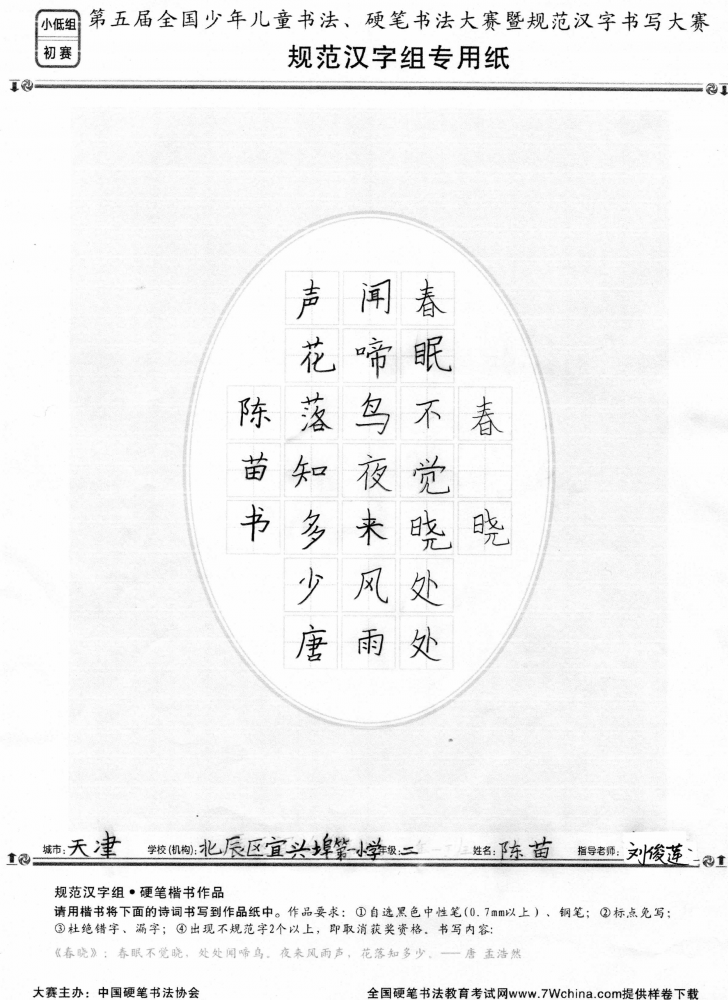 小低组
初赛
第五届全国少年儿童书法、硬笔书法大赛暨规范汉字书写大赛
规范汉字组专用纸
春晓
春眠不觉晓处处
闻啼鸟夜来风雨
声花落知多少唐
陈苗书
城市：天津 学校(机构)：北辰区宜兴埠第一小学 年级：二 姓名：陈苗 指导老师：刘俊莲
规范汉字组•硬笔楷书作品
请用楷书将下面的诗词书写到作品纸中。作品要求：①自选黑色中性笔(0.7mm以上)、钢笔；②标点免写；
③杜绝错字、漏字；④出现不规范字2个以上，即取消获奖资格。书写内容：
《春晓》：春眠不觉晓，处处闻啼鸟。夜来风雨声，花落知多少。——唐 孟浩然
大赛主办：中国硬笔书法协会
全国硬笔书法教育考试网www.7Wchina.com提供样卷下载